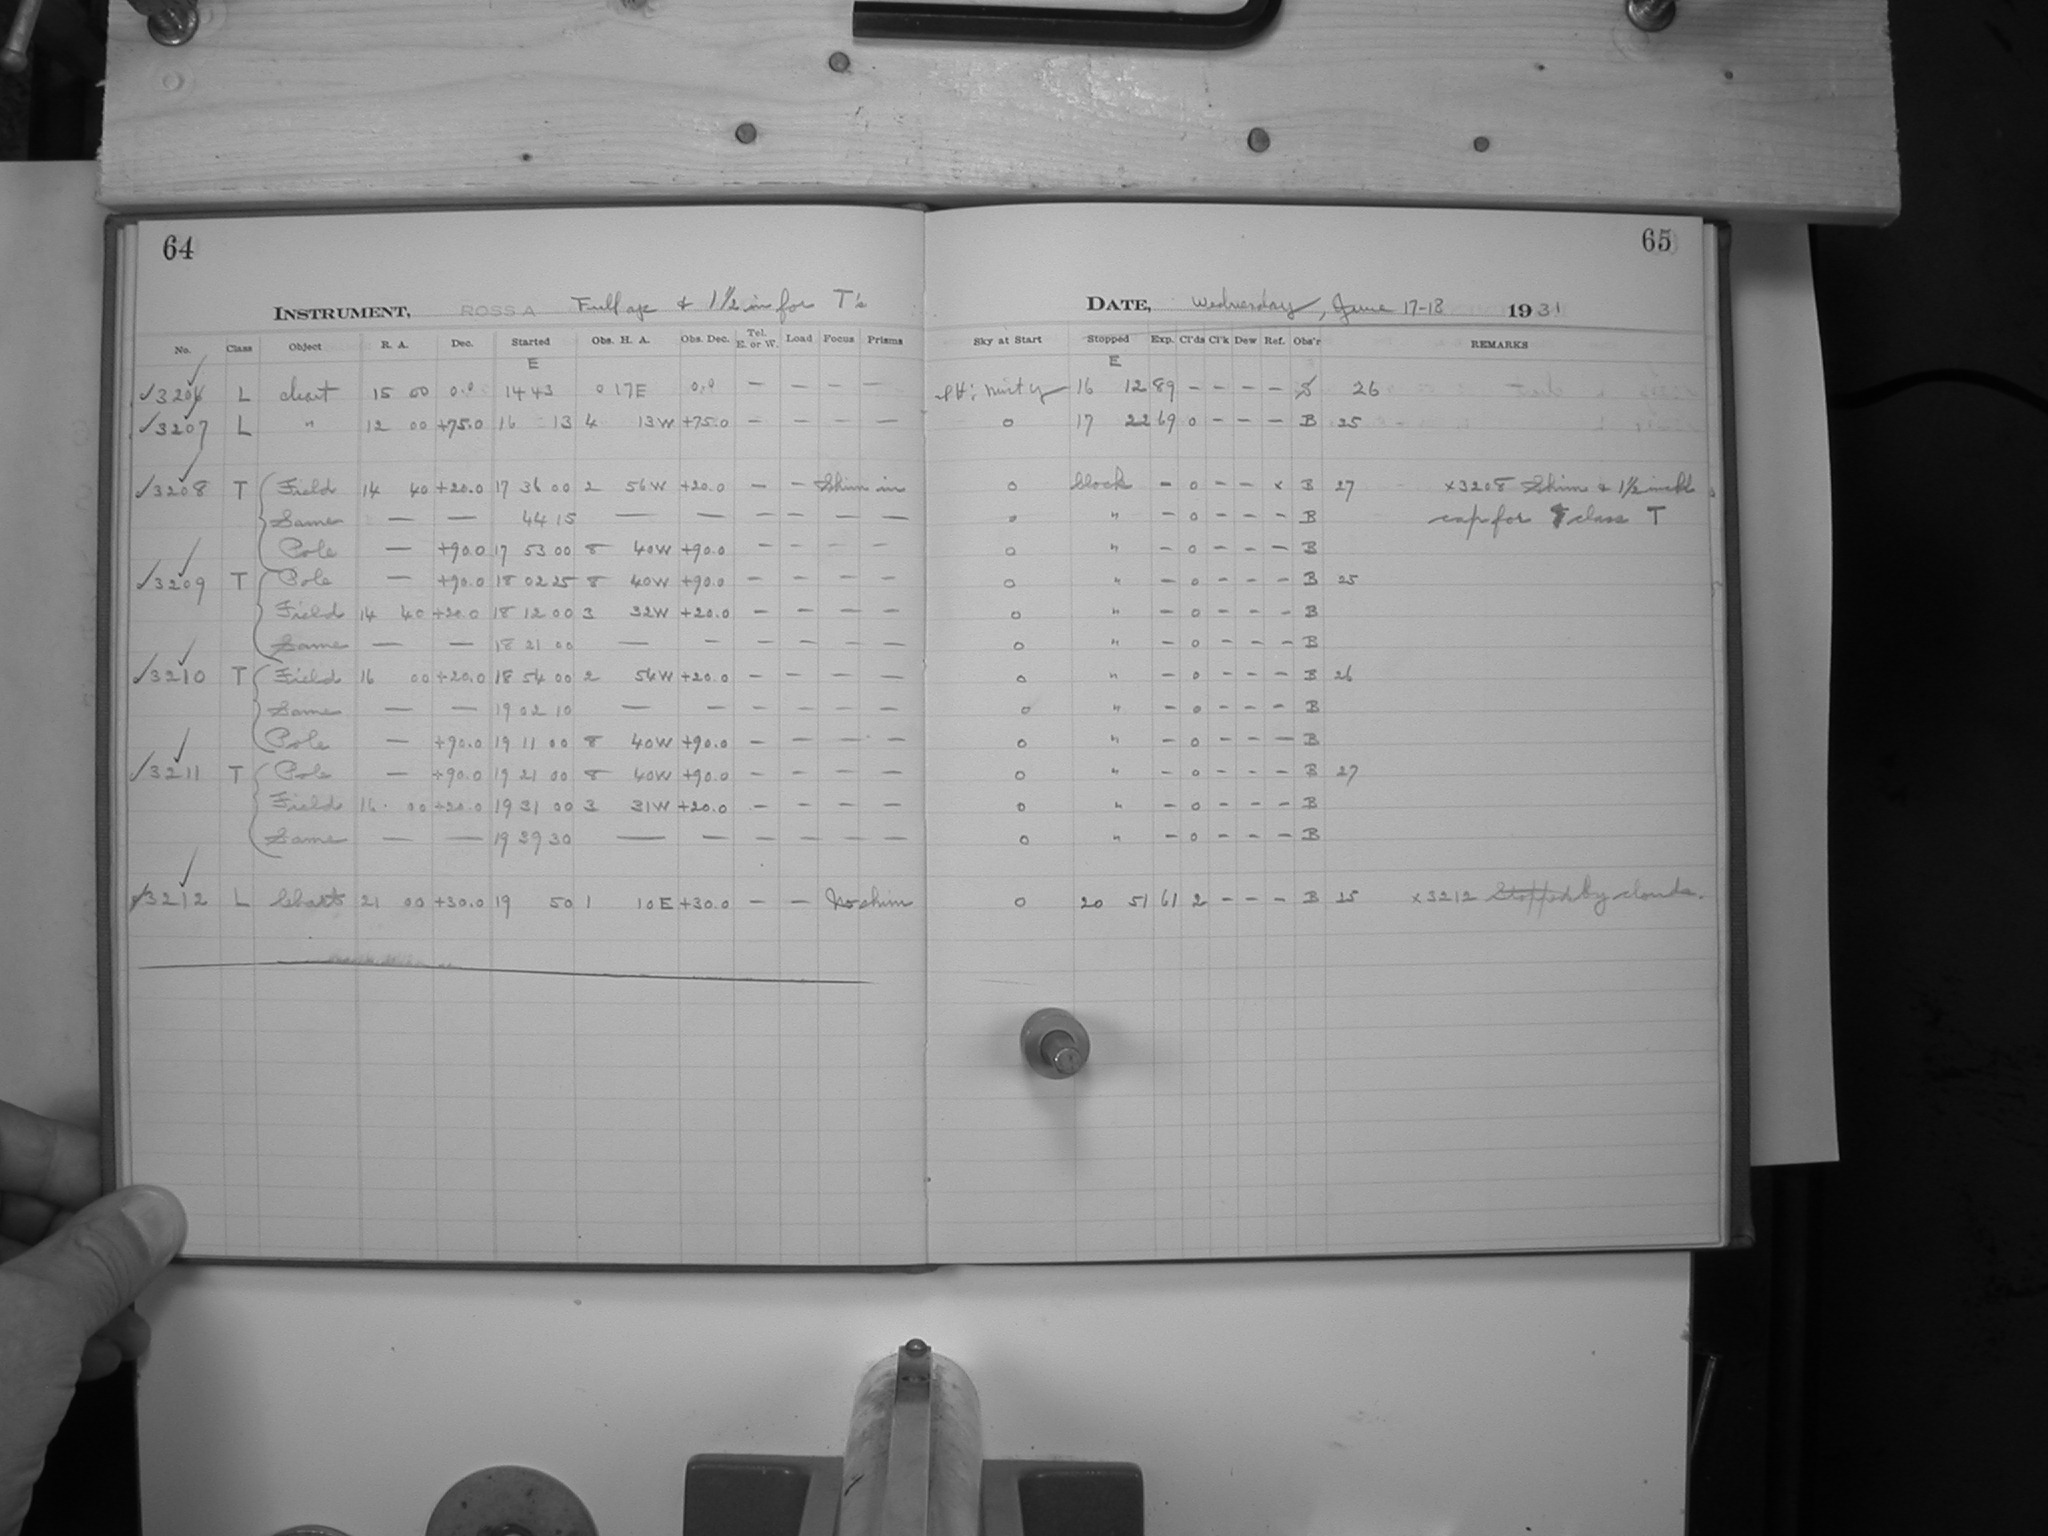 64
INSTRUMENT, ROSS A Full ap & 1 1/2 in for T's
No. Class Object R. A. Dec. Started Obs. H. A. Obs. Dec. Tel. E. or W. Load Focus Prisms
E
✓3206 L chart 15 00 0.0 14 43 0 17E 0.0 — — — —
✓3207 L " 12 00 +75.0 16 13 4 13W +75.0 — — — —
✓3208 T Field 14 40 +20.0 17 36 00 2 56W +20.0 — — Shim in
Same — — 44 15 — — — — — —
Pole — +90.0 17 53 00 8 40W +90.0 — — — —
✓3209 T Pole — +90.0 18 02 25 8 40W +90.0 — — — —
Field 14 40 +20.0 18 12 00 3 32W +20.0 — — — —
Same — — 18 21 00 — — — — — —
✓3210 T Field 16 00 +20.0 18 54 00 2 54W +20.0 — — — —
Same — — 19 02 10 — — — — — —
Pole — +90.0 19 11 00 8 40W +90.0 — — — —
✓3211 T Pole — +90.0 19 21 00 8 40W +90.0 — — — —
Field 16 00 +20.0 19 31 00 3 31W +20.0 — — — —
Same — — 19 39 30 — — — — — —
3212 L Chart 21 00 +30.0 19 50 1 10E +30.0 — — No shim
65
DATE, Wednesday, June 17-18 1931
Sky at Start Stopped Exp. Cl'ds Cl'k Dew Ref. Obs'r REMARKS
E
misty 16 12 89 — — — — S 26
0 17 22 69 0 — — — B 25
0 clock — 0 — — x B 27 x3208 Shim & 1 1/2 inch
0 " — 0 — — — B cap for class T
0 " — 0 — — — B
0 " — 0 — — — B 25
0 " — 0 — — — B
0 " — 0 — — — B
0 " — 0 — — — B 26
0 " — 0 — — — B
0 " — 0 — — — B
0 " — 0 — — — B 27
0 " — 0 — — — B
0 " — 0 — — — B
0 20 51 61 2 — — — B 25 x3212 Stopped by clouds.